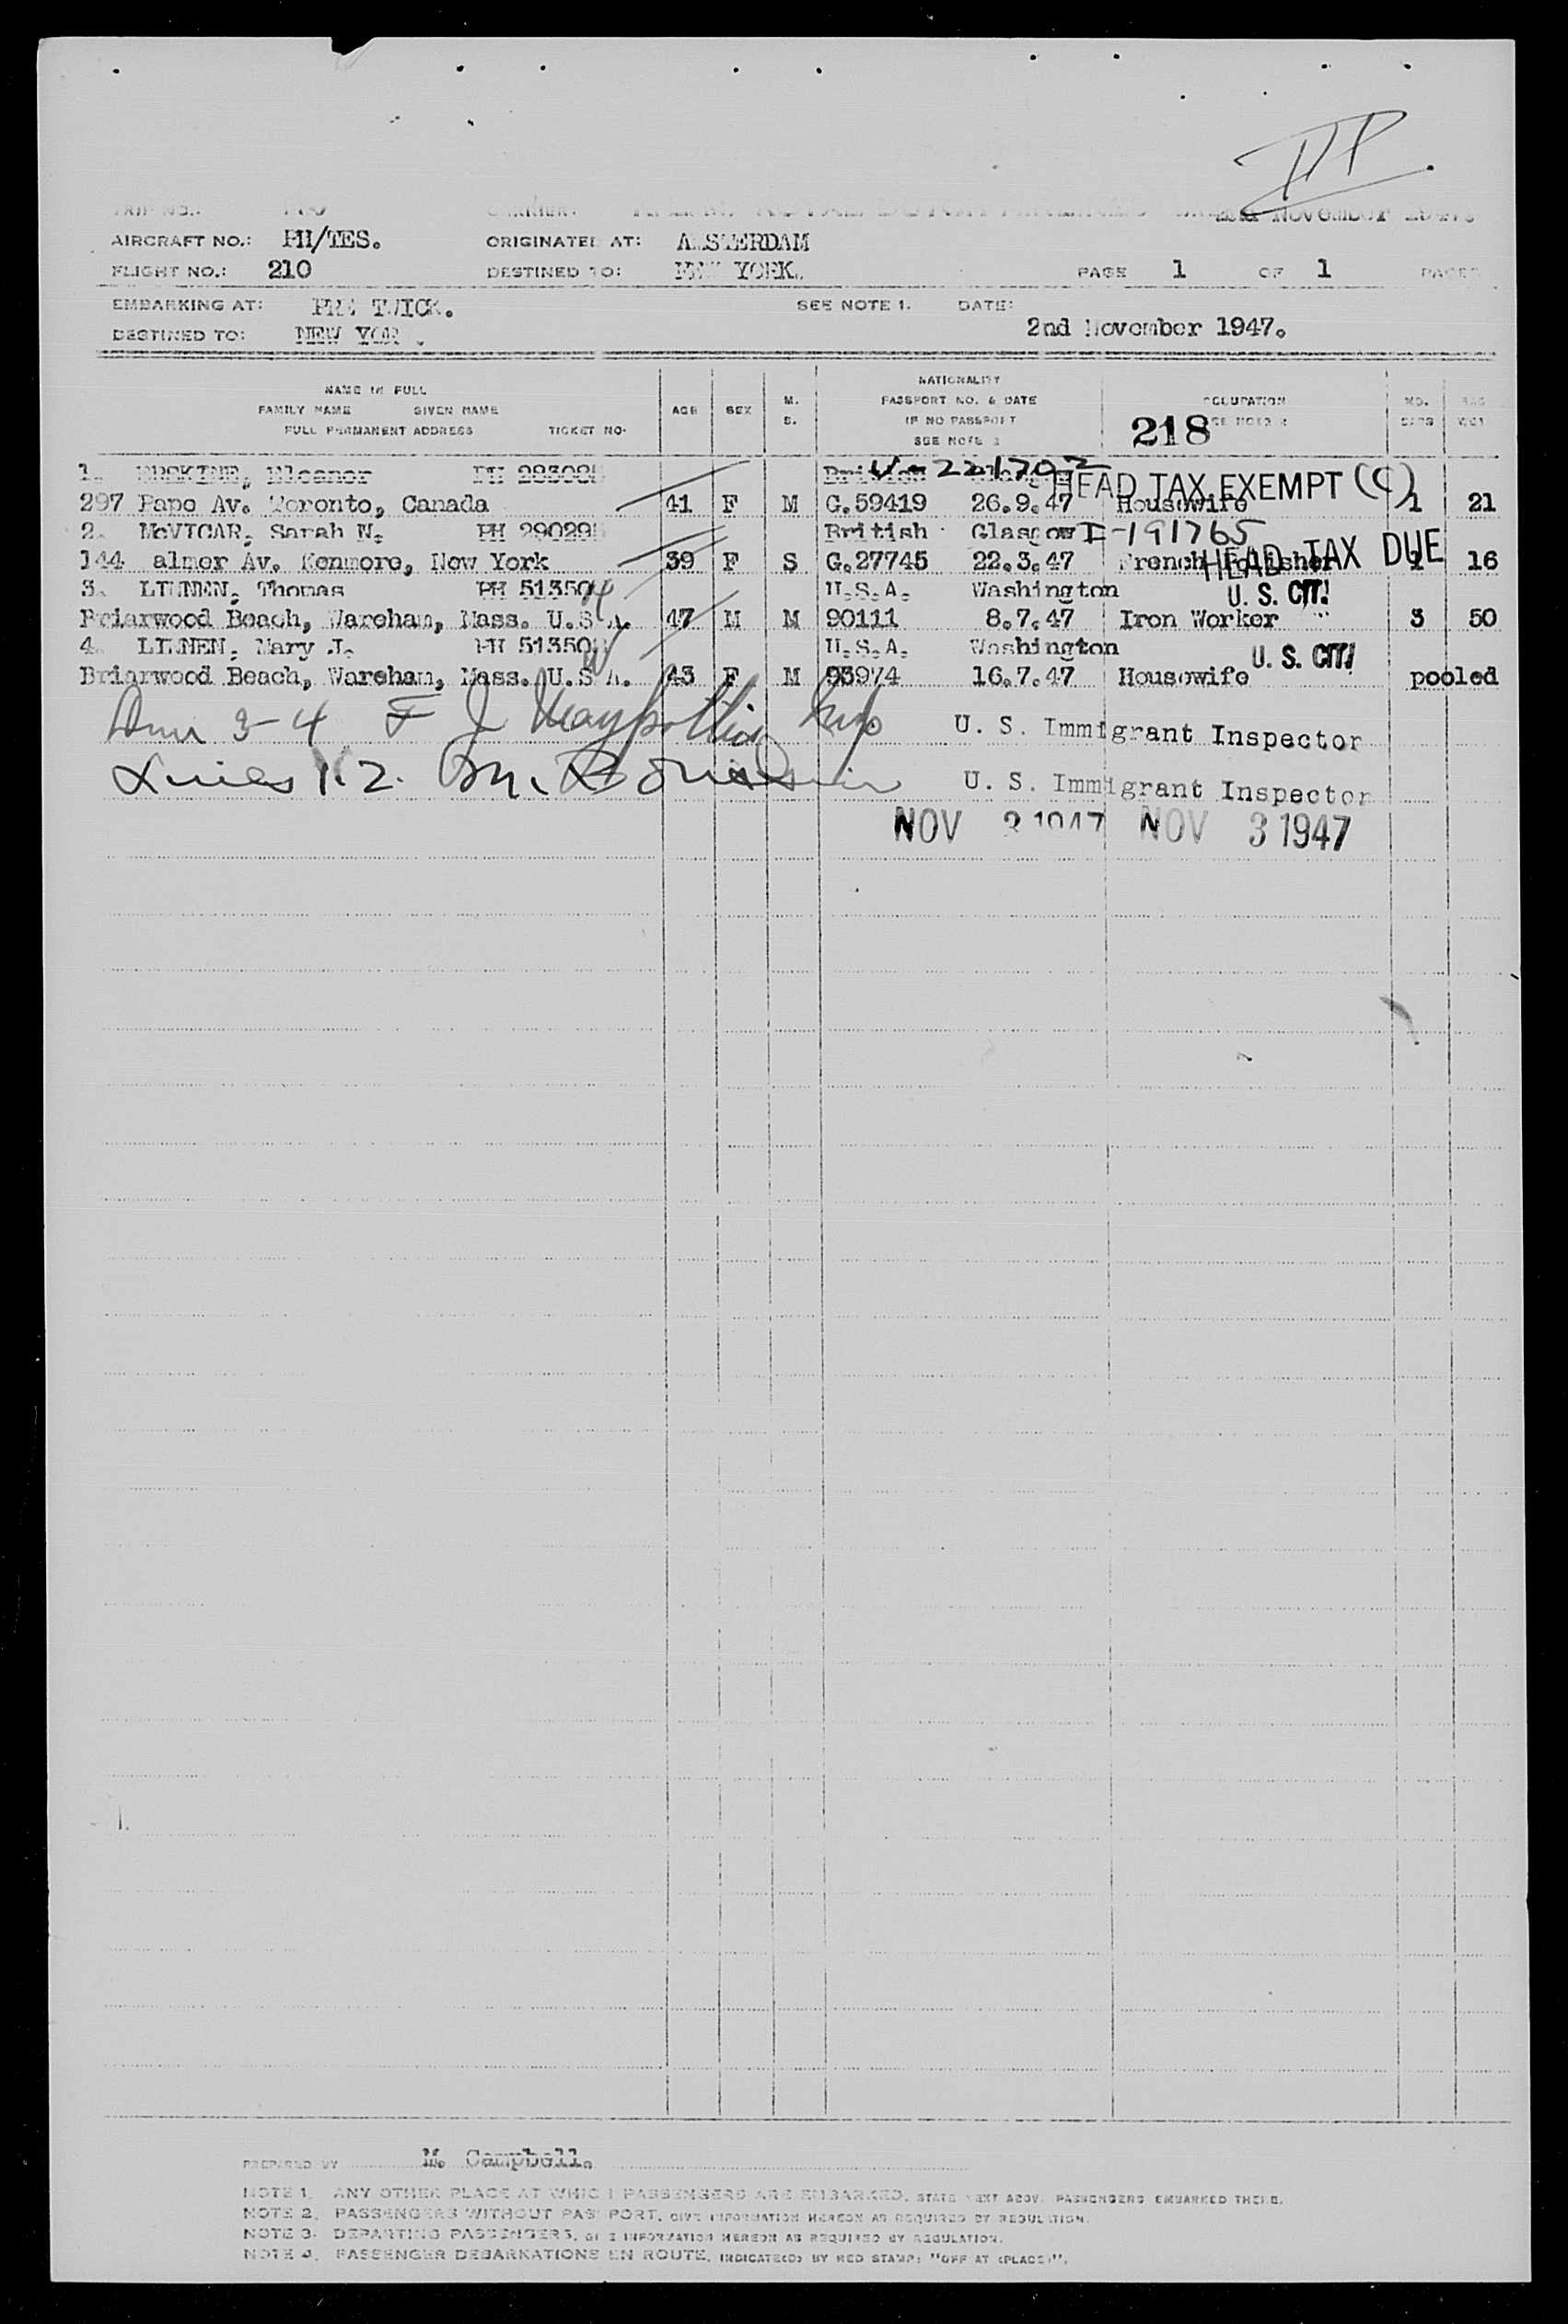 TRIP NO.: CARRIER: 2nd November 1947.
AIRCRAFT NO.: PH/TES. ORIGINATED AT: AMSTERDAM
FLIGHT NO.: 210 DESTINED TO: NEW YORK. PAGE 1 OF 1 PAGES
EMBARKING AT: SEE NOTE 1. DATE:
2nd November 1947.
DESTINED TO: NEW YOR .
NAME IN FULL
FAMILY NAME GIVEN NAME
FULL PERMANENT ADDRESS TICKET NO.
AGE SEX M. S.
NATIONALITY
PASSPORT NO. & DATE
IF NO PASSPORT
SEE NOTE 2
OCCUPATION
SEE NOTE
NO.
BAG WGT
218
1. ERSKINE, Eleanor PH V-221702
HEAD TAX EXEMPT (C)
297 Pape Av. Toronto, Canada 41 F M G.59419 26.9.47 Housewife 1 21
2. McVICAR, Sarah N. PH 29029 British Glasgow I-191765
HEAD TAX DUE
144 almer Av. Kenmore, New York 39 F S G.27745 22.3.47 French Polisher 1 16
3. LINNEN, Thomas PH 51350 U.S.A. Washington U. S. CIT.
Briarwood Beach, Wareham, Mass. U.S.A. 47 M M 90111 8.7.47 Iron Worker 3 50
4. LINNEN, Mary J. PH 51350 U.S.A. Washington U. S. CIT.
Briarwood Beach, Wareham, Mass. U.S.A. 43 F M 93974 16.7.47 Housewife pooled
3-4 F J U. S. Immigrant Inspector
Lines 1.2. M. U. S. Immigrant Inspector
NOV 3 1947 NOV 3 1947
PREPARED BY M. Campbell.
NOTE 1. ANY OTHER PLACE AT WHICH PASSENGERS ARE EMBARKED, STATE NEXT ABOVE PASSENGERS EMBARKED THERE.
NOTE 2. PASSENGERS WITHOUT PASSPORT, GIVE INFORMATION HEREON AS REQUIRED BY REGULATION.
NOTE 3. DEPARTING PASSENGERS, GIVE INFORMATION HEREON AS REQUIRED BY REGULATION.
NOTE 4. PASSENGER DEBARKATIONS EN ROUTE, INDICATE(D) BY RED STAMP: "OFF AT (PLACE)".